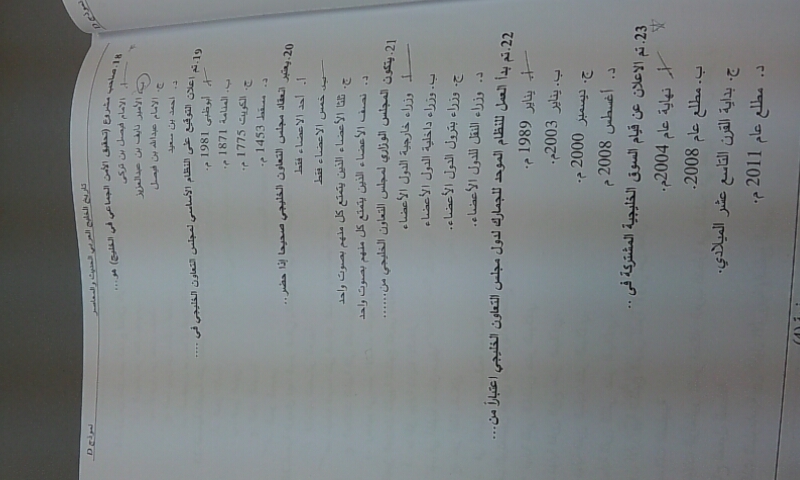 نموذج D
تاريخ الخليج العربي الحديث والمعاصر
18. صاحب مشروع (تحقيق الأمن الجماعي في الخليج) هو...
أ. الامام فيصل بن تركي
ب. الأمير نايف بن عبدالعزيز
ج. الامام عبدالله بن فيصل
د. احمد بن سعيد
19. تم اعلان التوقيع على النظام الأساسي لمجلس التعاون الخليجي في ....
أ. ابوظبي 1981 م.
ب. المنامة 1871 م.
ج. الكويت 1775 م.
د. مسقط 1453 م.
20. يعتبر انعقاد مجلس التعاون الخليجي صحيحا إذا حضر..
أ. أحد الاعضاء فقط
ب. خمس الاعضاء فقط
ج. ثلثا الأعضاء الذين يتمتع كل منهم بصوت واحد
د. نصف الأعضاء الذين يتمتع كل منهم بصوت واحد
21. يتكون المجلس الوزاري لمجلس التعاون الخليجي من.......
أ. وزراء خارجية الدول الأعضاء
ب. وزراء داخلية الدول الأعضاء
ج. وزراء بترول الدول الأعضاء.
د. وزراء النقل للدول الأعضاء.
22. تم بدأ العمل للنظام الموحد للجمارك لدول مجلس التعاون الخليجي اعتباراً من...
أ. يناير 1989 م.
ب. يناير 2003م.
ج. ديسمبر 2000 م.
د. اغسطس 2008 م
23. تم الاعلان عن قيام السوق الخليجية المشتركة في ...
أ. نهاية عام 2004م.
ب. مطلع عام 2008.
ج. بداية القرن التاسع عشر الميلادي.
د. مطلع عام 2011 م.
(4)